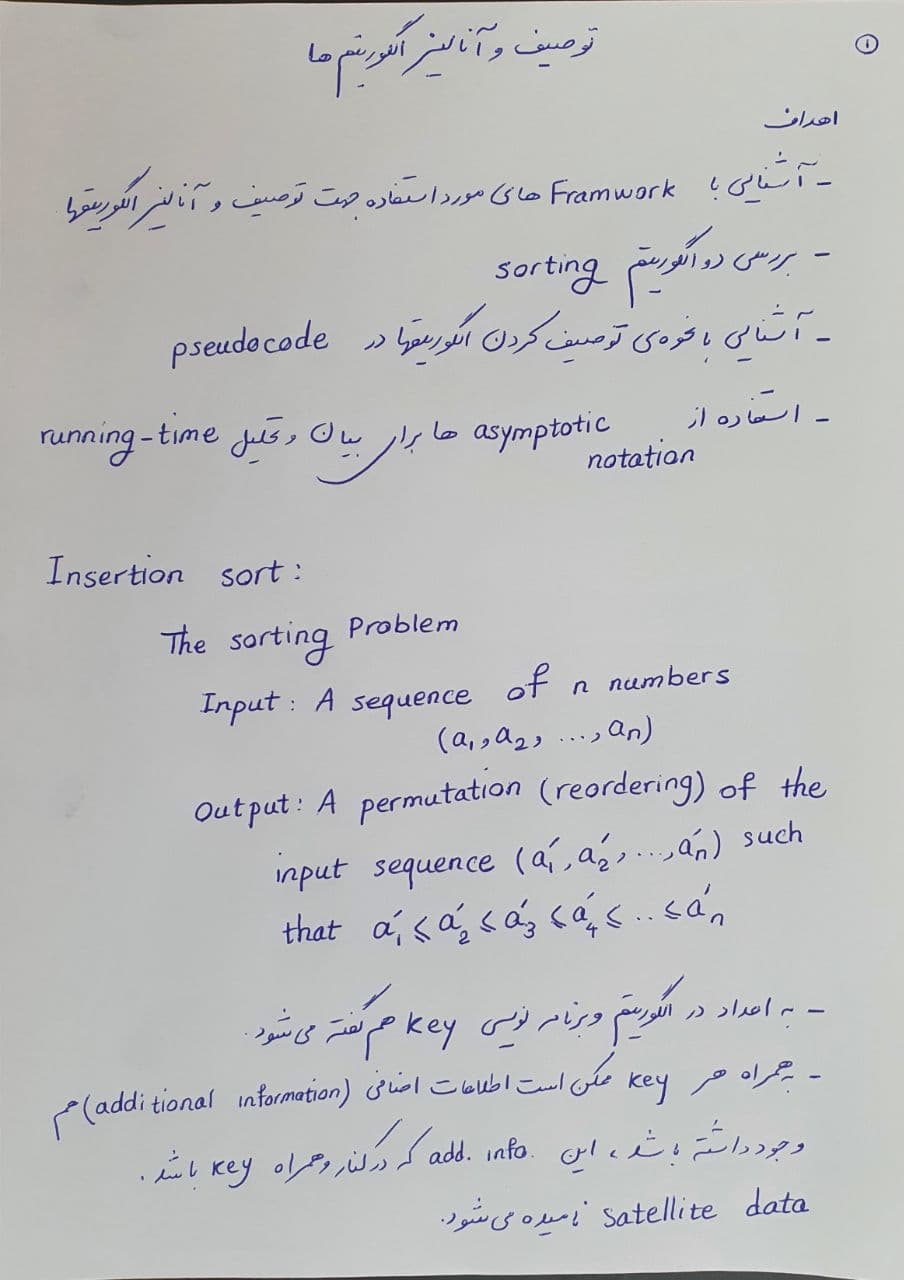 ①
توصیف و آنالیز الگوریتم ها
اهداف
- آشنایی با Framwork های مورد استفاده جهت توصیف و آنالیز الگوریتمها
- بررسی دو الگوریتم sorting
- آشنایی با نحوه‌ی توصیف کردن الگوریتمها در pseudocode
- استفاده از asymptotic ها برای بیان و تحلیل running-time
notation
Insertion sort:
The sorting Problem
Input: A sequence of n numbers
(a₁, a₂, ..., aₙ)
Output: A permutation (reordering) of the
input sequence (a₁′, a₂′, ..., aₙ′) such
that a₁′ ⩽ a₂′ ⩽ a₃′ ⩽ a₄′ ⩽ .. ⩽ a′ₙ
- به اعداد در الگوریتم و برنامه نویسی key هم گفته می‌شود.
- به همراه هر key ممکن است اطلاعات اضافی (additional information) هم
وجود داشته باشد، این add. info. که در کنار و همراه key باشد.
satellite data نامیده می‌شود.